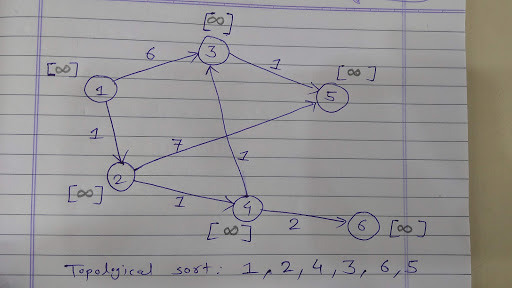 [∞]
6
3
1
[∞]
[∞]
1
5
1
7
2
1
1
[∞]
4
2
6
[∞]
[∞]
Topological sort: 1, 2, 4, 3, 6, 5